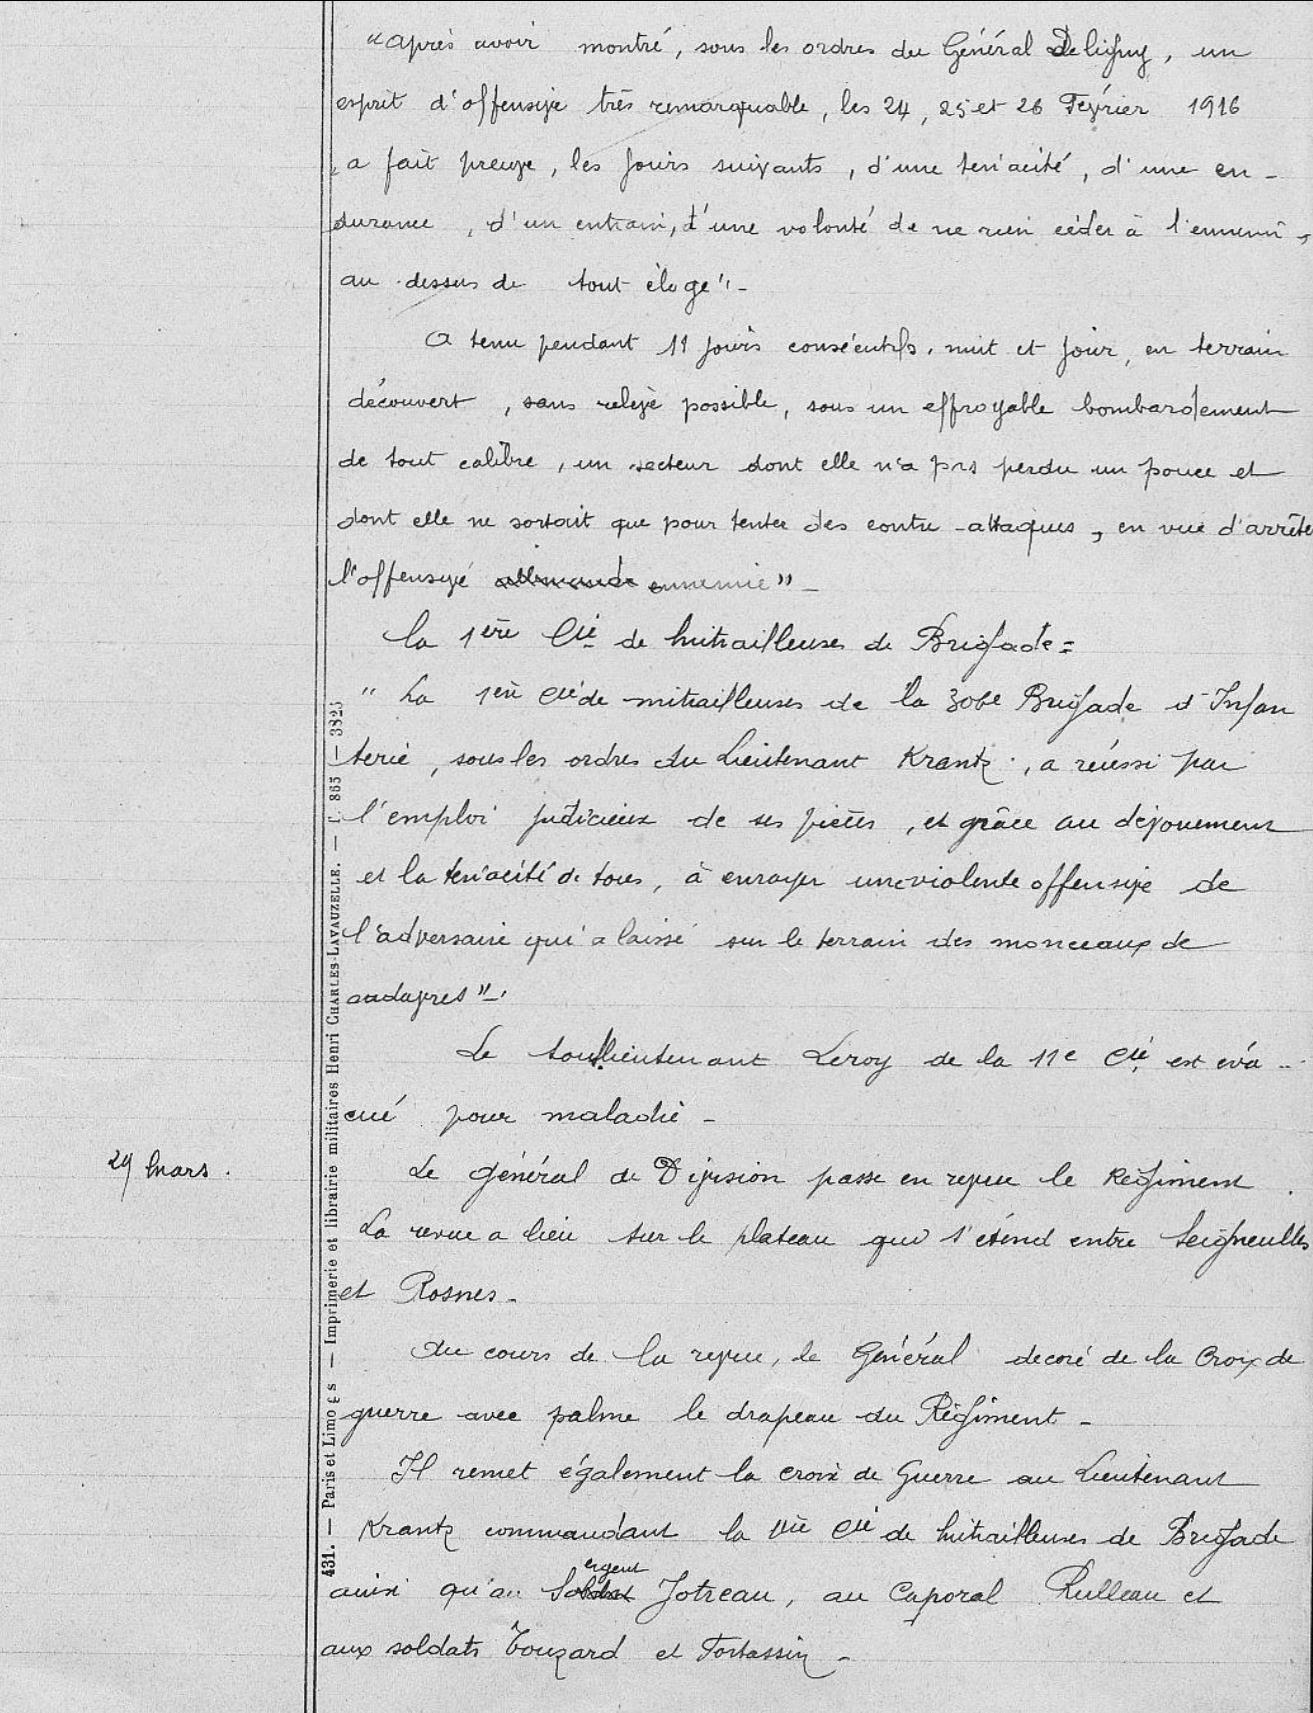 "après avoir montré, sous les ordres du Général Deligny, un
esprit d'offensive très remarquable, les 24, 25 et 26 Février 1916
, a fait preuve, les jours suivants, d'une ténacité, d'une en-
durance, d'un entrain, d'une volonté de ne rien céder à l'ennemi,
au dessus de tout éloge" -
A tenu pendant 11 jours consécutifs, nuit et jour, en terrain
découvert, sans relève possible, sous un effroyable bombardement
de tout calibre, un secteur dont elle n'a pas perdu un pouce et
dont elle ne sortait que pour tenter des contre-attaques, en vue d'arrête
l'offensive allemande ennemie" -
La 1ère Cie de Mitrailleuses de Brigade =
" La 1ère Cie de mitrailleuses de la 306e Brigade d'Infan
terie, sous les ordres du Lieutenant Krantz, a réussi par
l'emploi judicieux de ses pièces, et grâce au dévouement
et la ténacité de tous, à enrayer une violente offensive de
l'adversaire qui a laissé sur le terrain des monceaux de
cadavres" -.
Le Souslieutenant Leroy de la 11e Cie est éva-
cué pour maladie -
29 Mars.
Le Général de Division passe en revue le Régiment.
La revue a lieu sur le plateau qui s'étend entre Seigneulles
et Rosnes -
Au cours de la revue, le Général décore de la Croix de
guerre avec palme le drapeau du Régiment -
Il remet également la croix de Guerre au Lieutenant
Krantz commandant la 1ère Cie de Mitrailleuses de Brigade
ainsi qu'au Soldat ergent Jotreau, au Caporal Rulleau et
aux soldats Touzard et Fortassin -
431. — Paris et Limoges — Imprimerie et librairie militaires Henri CHARLES-LAVAUZELLE. — L. 865 — 3825